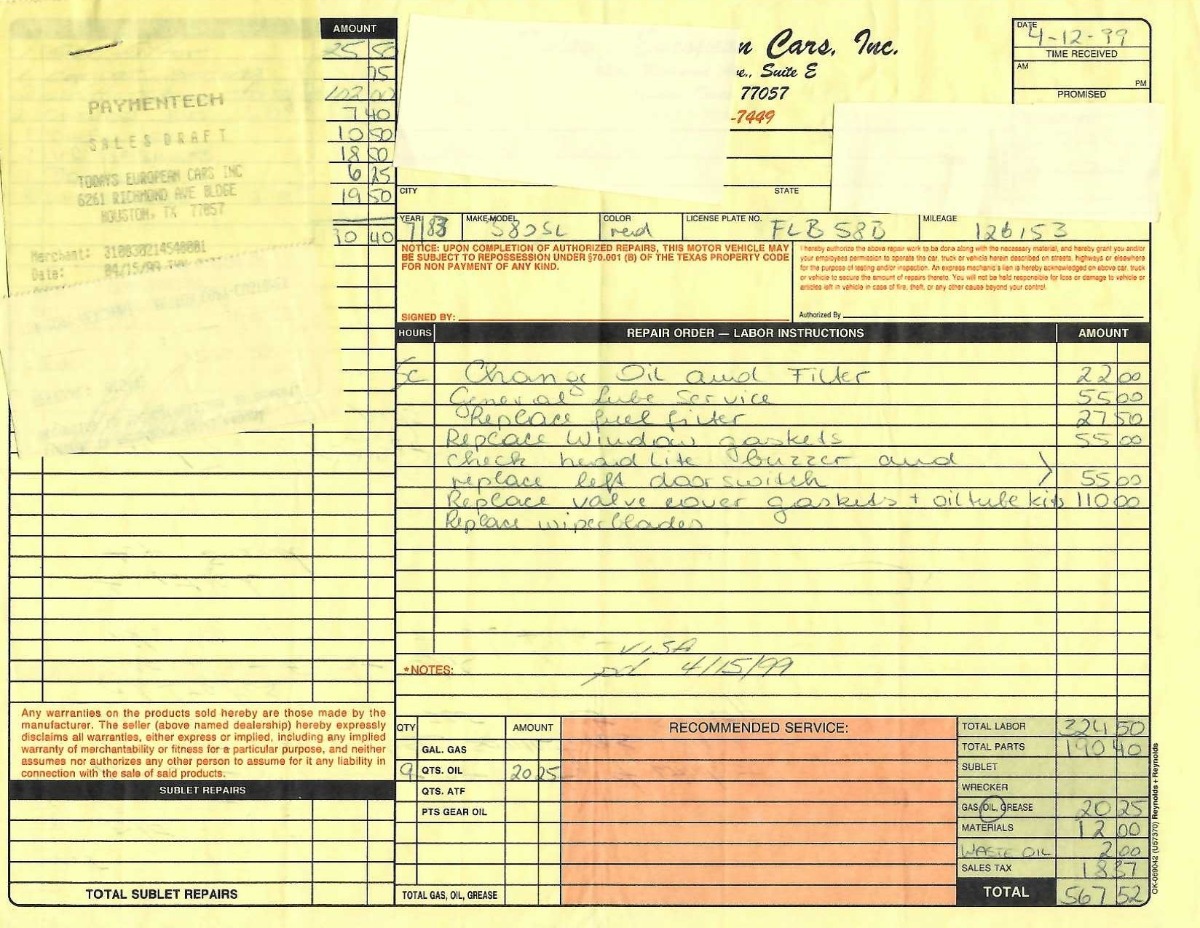 AMOUNT
25 50
75
102 00
7 40
10 50
18 50
6 25
19 50
90 40
PAYMENTECH
SALES DRAFT
TODAYS EUROPEAN CARS INC
6261 RICHMOND AVE BLDGE
HOUSTON, TX 77057
Merchant: 310030214540001
Date: 04/15/99
n Cars, Inc.
e., Suite E
77057
-7449
DATE
4-12-99
TIME RECEIVED
AM
PM
PROMISED
CITY STATE
YEAR MAKE-MODEL COLOR LICENSE PLATE NO. MILEAGE
83 380SL red FLB 58B 126153
NOTICE: UPON COMPLETION OF AUTHORIZED REPAIRS, THIS MOTOR VEHICLE MAY
BE SUBJECT TO REPOSSESSION UNDER §70.001 (B) OF THE TEXAS PROPERTY CODE
FOR NON PAYMENT OF ANY KIND.
SIGNED BY:
I hereby authorize the above repair work to be done along with the necessary material, and hereby grant you and/or
your employees permission to operate the car, truck or vehicle herein described on streets, highways or elsewhere
for the purpose of testing and/or inspection. An express mechanic's lien is hereby acknowledged on above car, truck
or vehicle to secure the amount of repairs thereto. You will not be held responsible for loss or damage to vehicle or
articles left in vehicle in case of fire, theft, or any other cause beyond your control.
Authorized By
HOURS REPAIR ORDER — LABOR INSTRUCTIONS AMOUNT
Change Oil and Filter 22 00
General Lube Service 55 00
Replace fuel filter 27 50
Replace Window gaskets 55 00
check headlite buzzer and
replace left doorswitch 55 00
Replace valve cover gaskets + oiltube kits 110 00
Replace wiperblades
VISA
*NOTES: pd 4/15/99
Any warranties on the products sold hereby are those made by the
manufacturer. The seller (above named dealership) hereby expressly
disclaims all warranties, either express or implied, including any implied
warranty of merchantability or fitness for a particular purpose, and neither
assumes nor authorizes any other person to assume for it any liability in
connection with the sale of said products.
SUBLET REPAIRS
TOTAL SUBLET REPAIRS
QTY AMOUNT
GAL. GAS
9 QTS. OIL 20 25
QTS. ATF
PTS GEAR OIL
TOTAL GAS, OIL, GREASE
RECOMMENDED SERVICE:
TOTAL LABOR 324 50
TOTAL PARTS 190 40
SUBLET
WRECKER
GAS, OIL, GREASE 20 25
MATERIALS 12 00
WASTE OIL 2 00
SALES TAX 18 37
TOTAL 567 52
OK-069042 (U57370) Reynolds + Reynolds